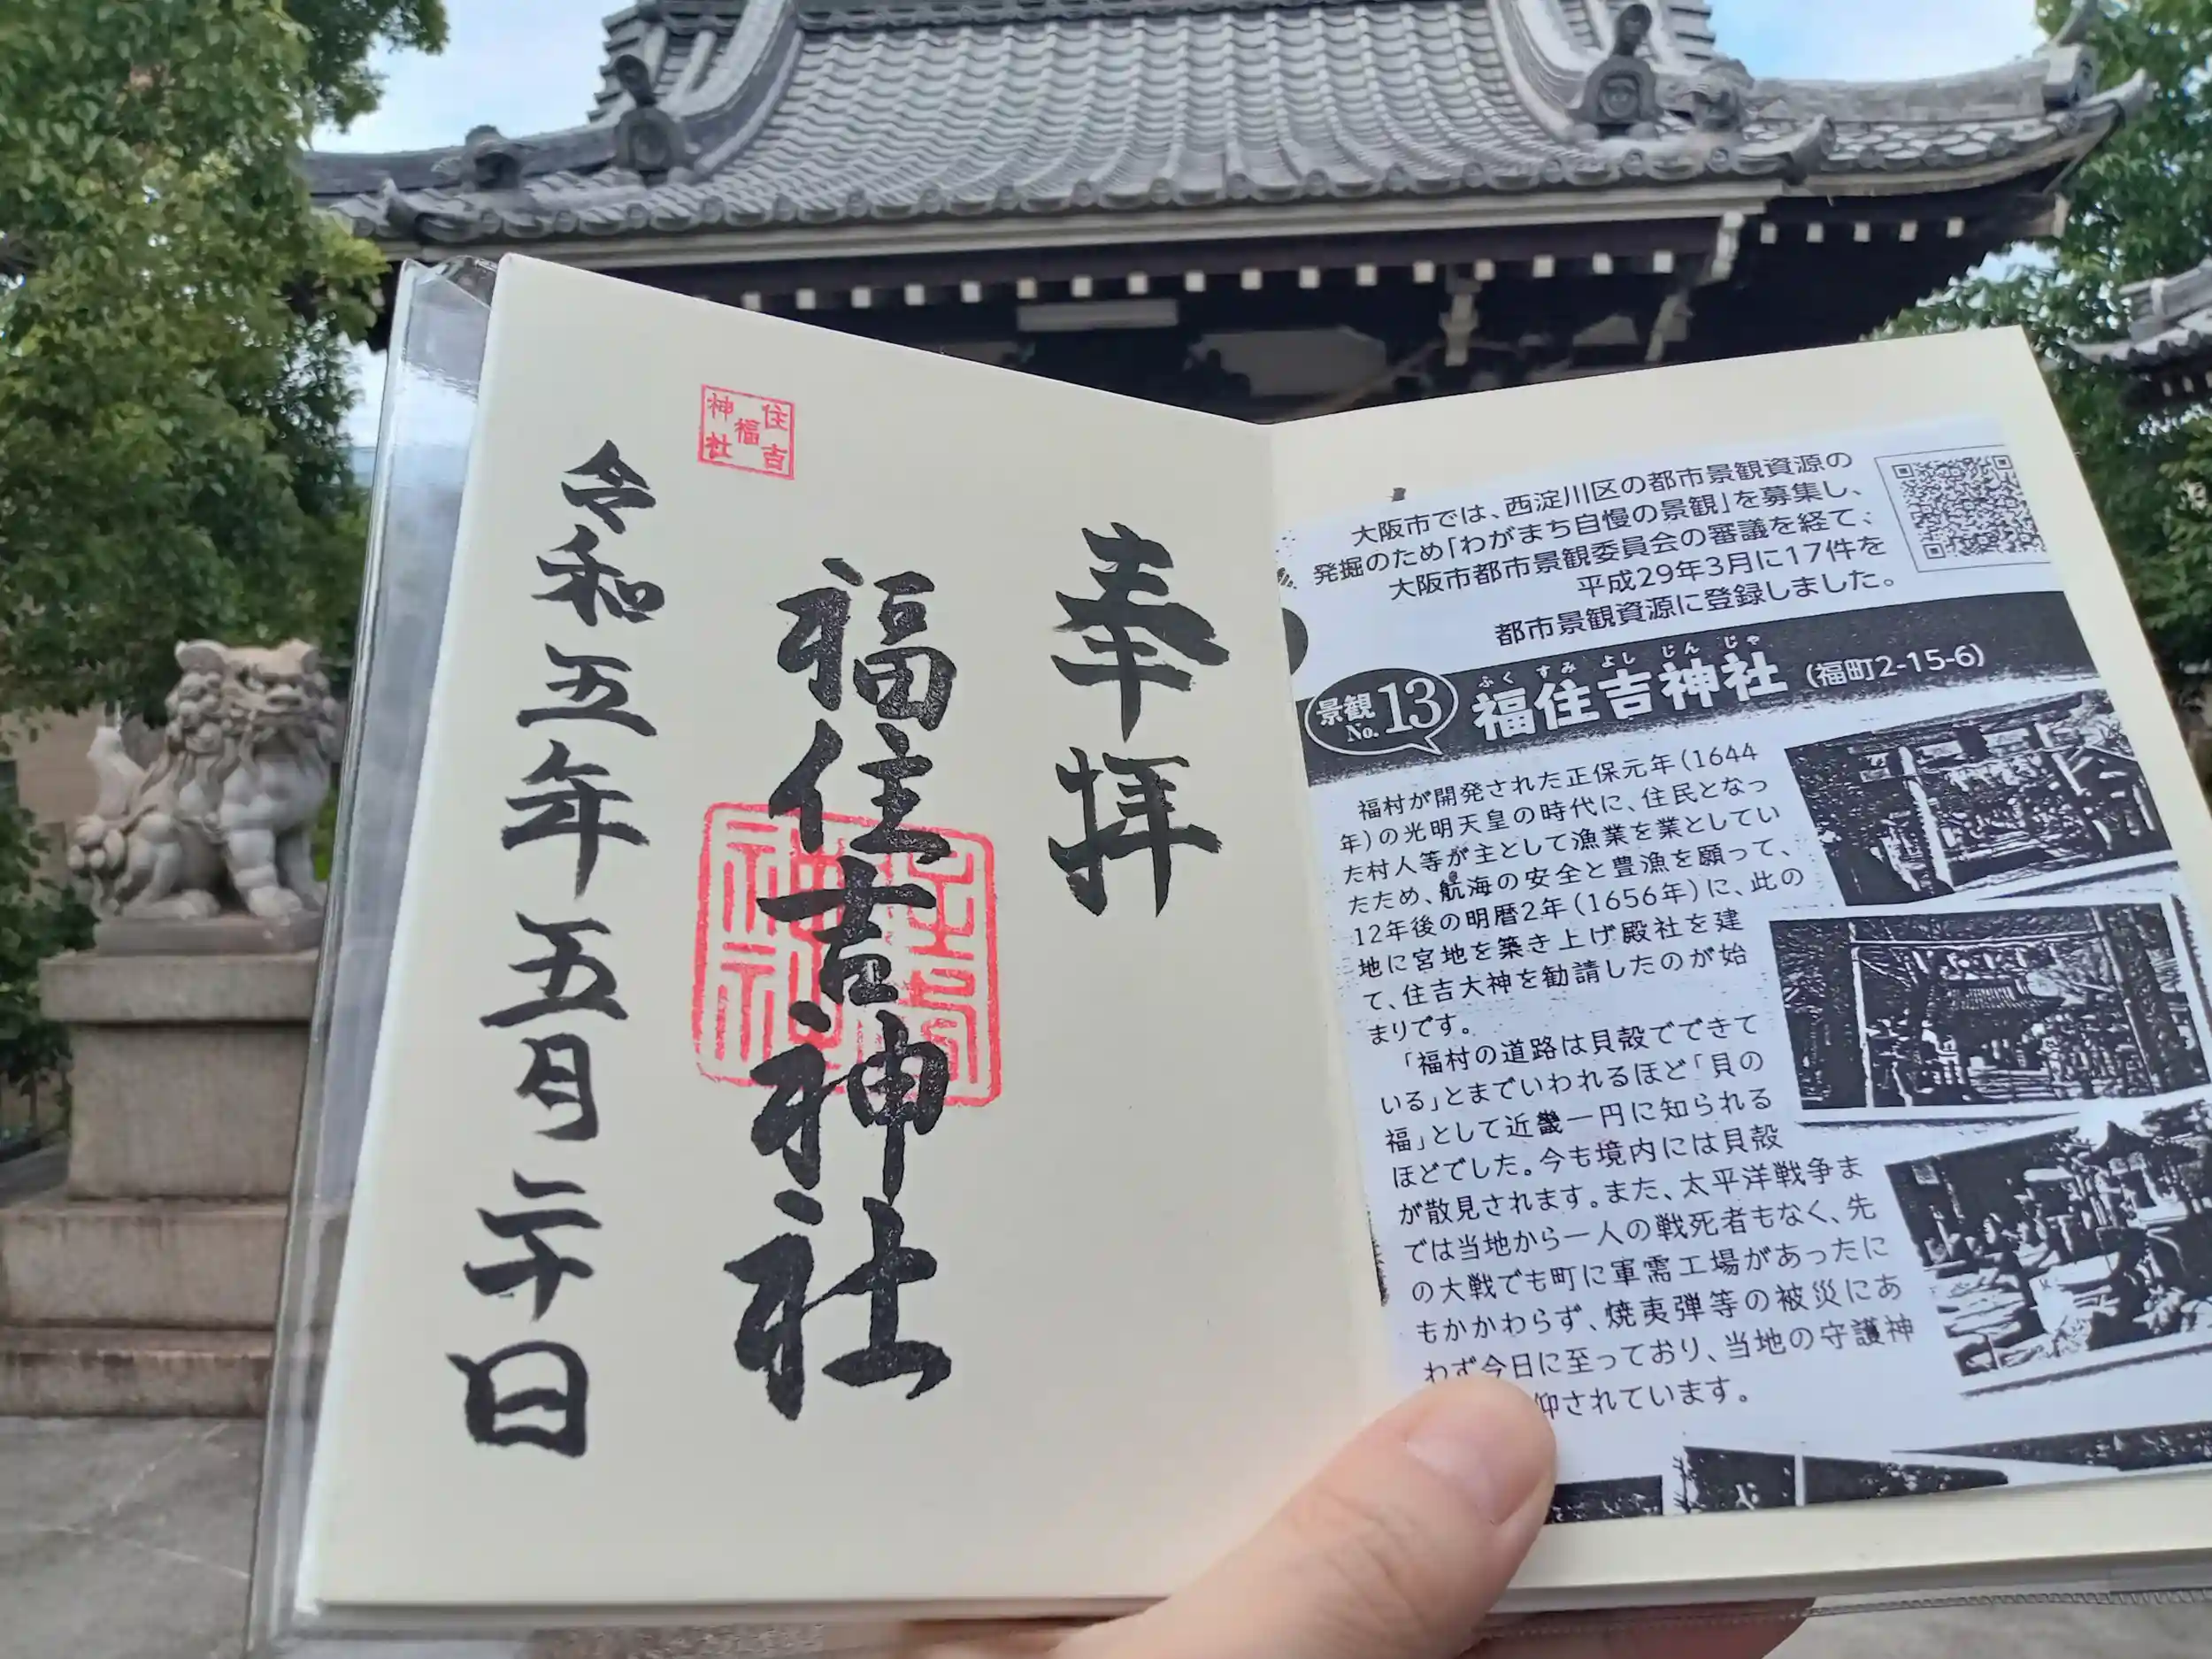 奉拝
福住吉神社
令和五年五月二十日
住吉
福
神社
大阪市では、西淀川区の都市景観資源の
発掘のため「わがまち自慢の景観」を募集し、
大阪市都市景観委員会の審議を経て、
平成29年3月に17件を
都市景観資源に登録しました。
景観
No.13
ふく すみ よし じん じゃ
福住吉神社 (福町2-15-6)
福村が開発された正保元年(1644
年)の光明天皇の時代に、住民となっ
た村人等が主として漁業を業としてい
たため、航海の安全と豊漁を願って、
12年後の明暦2年(1656年)に、此の
地に宮地を築き上げ殿社を建
て、住吉大神を勧請したのが始
まりです。
「福村の道路は貝殻でできて
いる」とまでいわれるほど「貝の
福」として近畿一円に知られる
ほどでした。今も境内には貝殻
が散見されます。また、太平洋戦争ま
では当地から一人の戦死者もなく、先
の大戦でも町に軍需工場があったに
もかかわらず、焼夷弾等の被災にあ
わず今日に至っており、当地の守護神
仰されています。